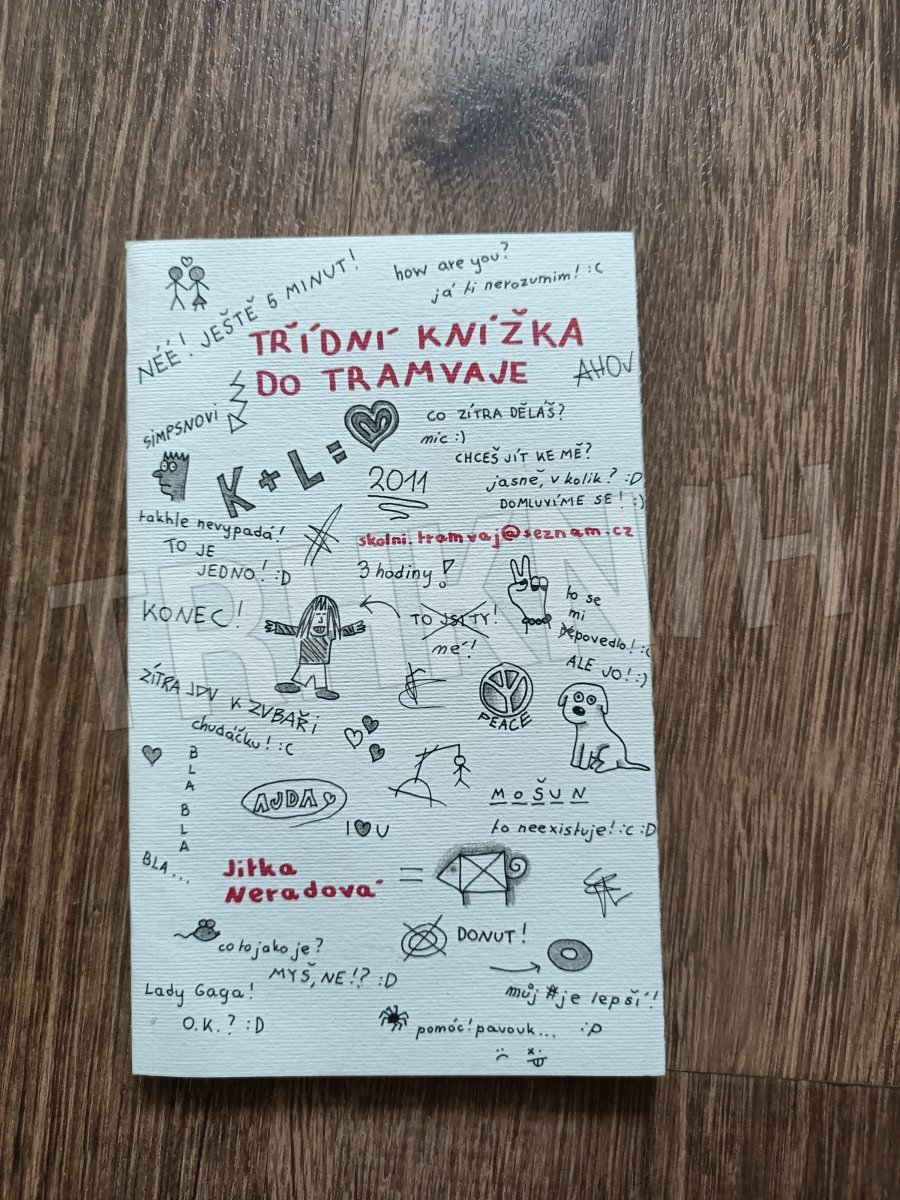 NÉÉ! JEŠTĚ 5 MINUT!
how are you?
já ti nerozumim! :C
TŘÍDNÍ KNÍŽKA
DO TRAMVAJE
AHOJ
SIMPSNOVI
K + L =
CO ZÍTRA DĚLÁŠ?
nic :)
CHCEŠ JÍT KE MĚ?
jasně, v kolik? :D
DOMLUVÍME SE! :)
2011
takhle nevypadá!
TO JE
JEDNO! :D
skolni.tramvaj@seznam.cz
3 hodiny!
KONEC!
TO JSI TY!
né!
to se
mi
povedlo! :C
ALE JO! :)
ZÍTRA JDU K ZUBAŘI
chudáčku! :C
PEACE
BLA BLA
BLA...
AJDA
I U
MOŠUN
to neexistuje! :C :D
Jitka
Neradová
=
DONUT!
co to jako je?
MYŠ, NE!? :D
můj #je lepší!
Lady Gaga!
O.K.? :D
pomóc! pavouk... :P
TRH KNIH